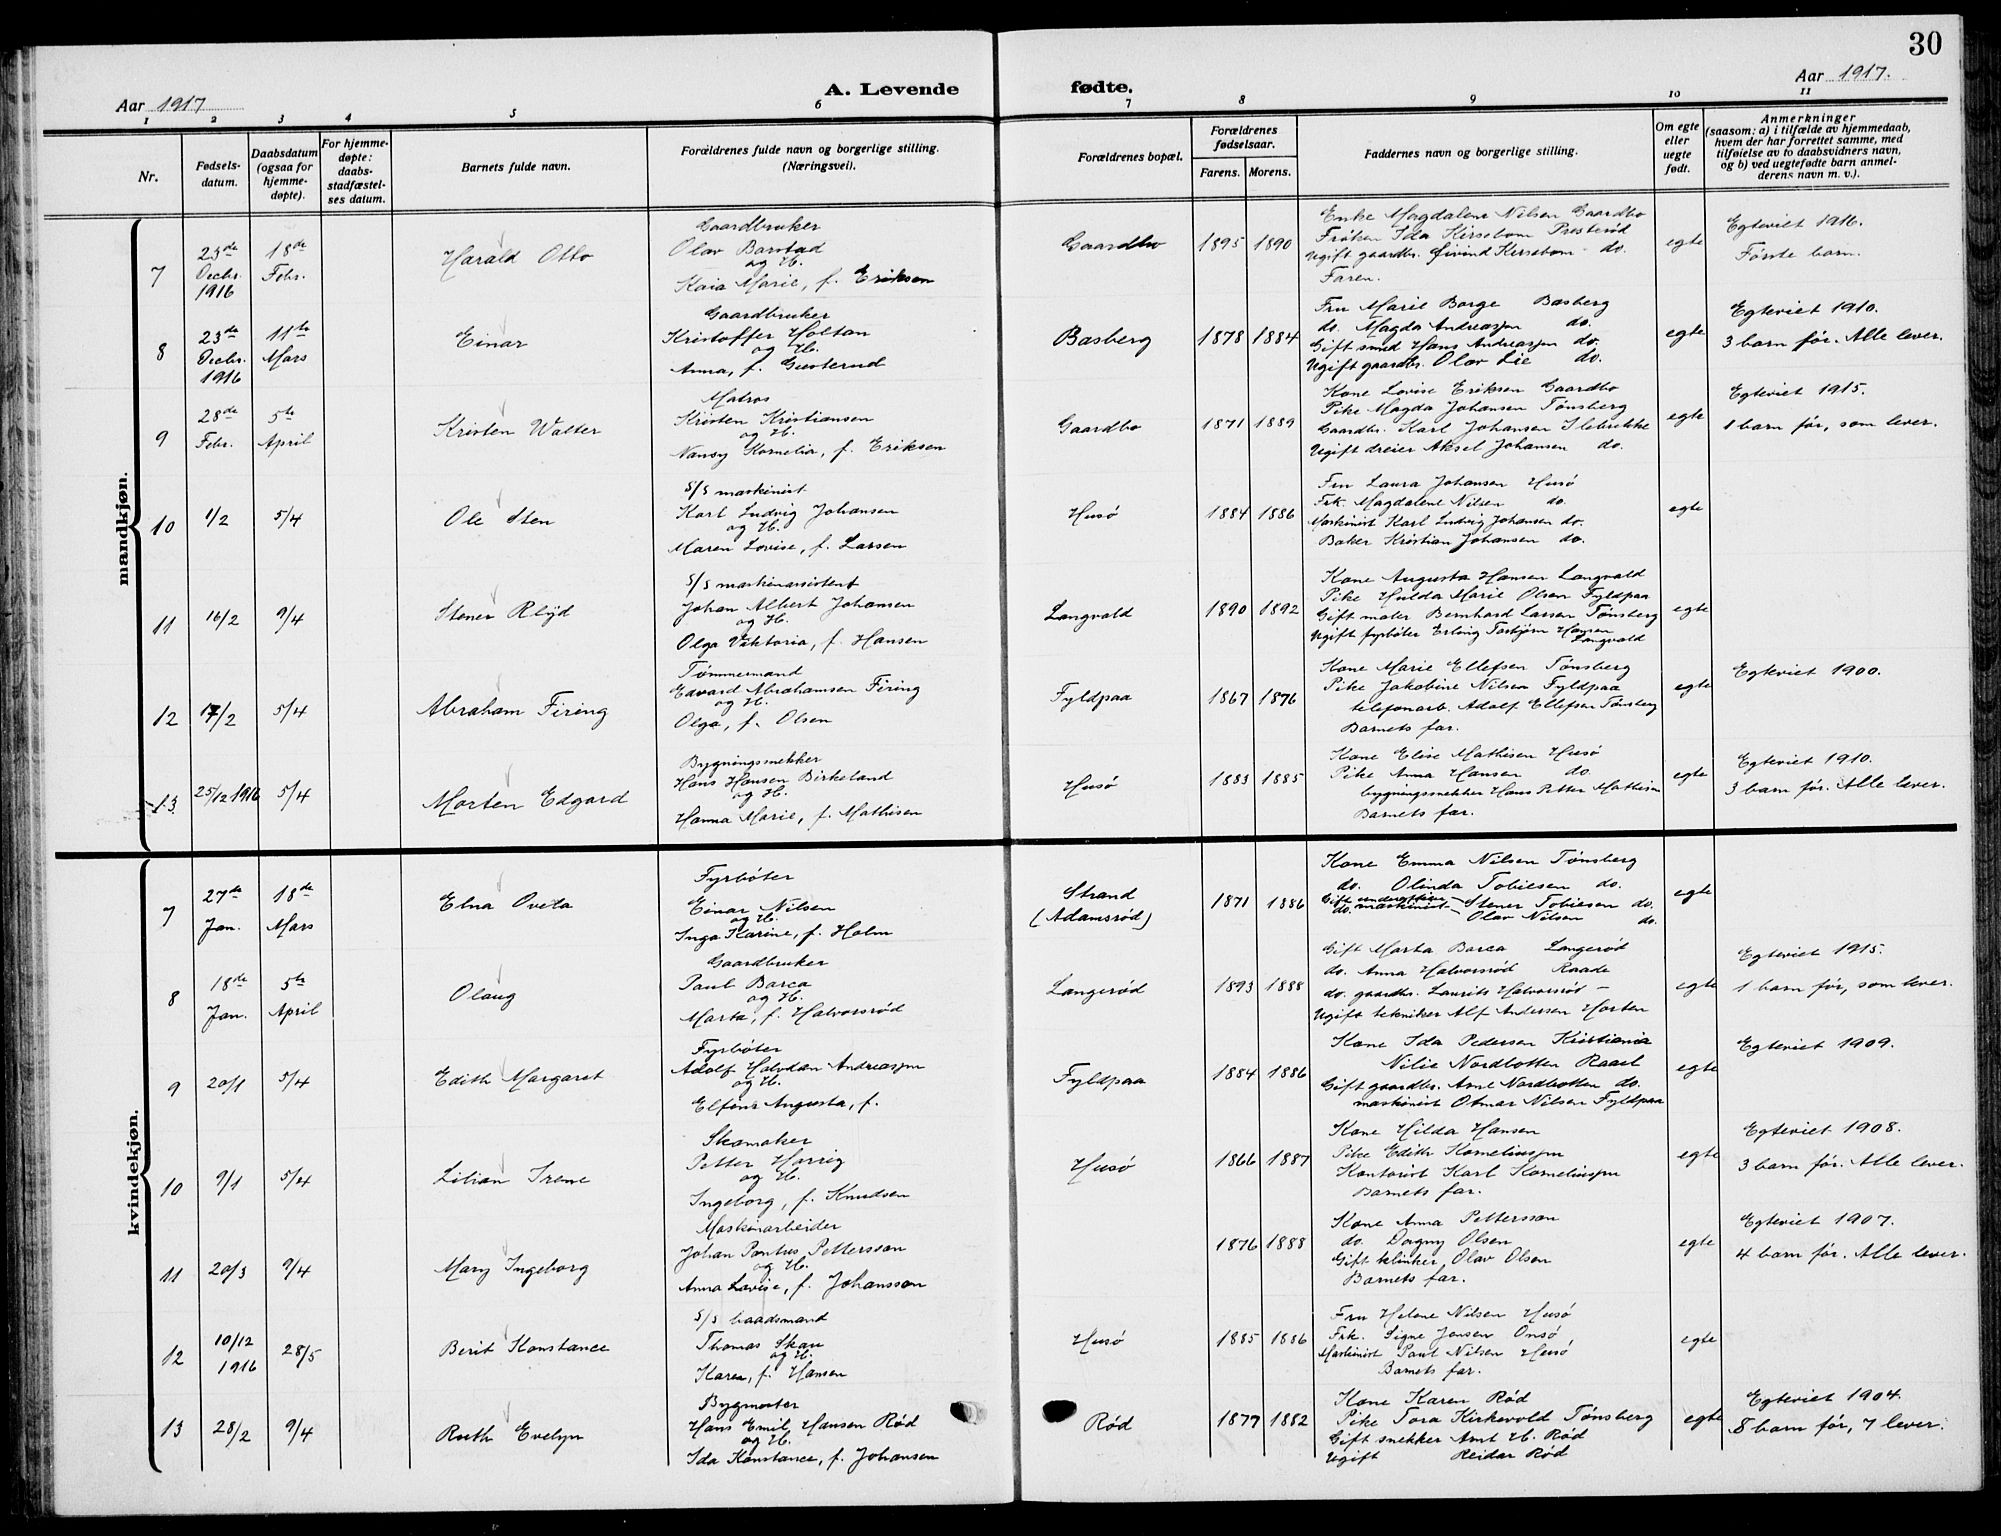 30
Aar 1917
A. Levende
fødte.
Aar 1917.
1 2 3 4 5 6 7 8 9 10 11
Nr.
Fødsels-
datum.
Daabsdatum
(ogsaa for
hjemme-
døpte).
For hjemme-
døpte:
daabs-
stadfæstel-
ses datum.
Barnets fulde navn.
Forældrenes fulde navn og borgerlige stilling.
(Næringsvei).
Forældrenes bopæl.
Forældrenes
fødselsaar.
Farens. Morens.
Faddernes navn og borgerlige stilling.
Om egte
eller
uegte
født.
Anmerkninger
(saasom: a) i tilfælde av hjemmedaab,
hvem der har forrettet samme, med
tilføielse av to daabsvidners navn,
og b) ved uegtefødte barn anmel-
derens navn m. v.).
mandkjøn.
7
23de
Decbr.
1916
18de
Febr.
Harald Otto
Gaardbruker
Olav Barstad
og H.
Kaia Marie, f. Eriksen
Gaardbo
1895 1890
Enke Magdalene Nilsen Gaardbo
Frøken Ida Kirsebom Presterød
Ugift gaardbr. Øivind Kirsebom do.
Faren.
egte
Egteviet 1916.
Første barn.
8
23de
Decbr.
1916
11te
Mars
Einar
Gaardbruker
Kristoffer Holtan
og H.
Anna, f. Gusterud
Basberg
1878 1884
Fru Marie Borge Basberg
do. Magda Andreasen do.
Gift smed Hans Andreasen do.
Ugift gaardbr. Olav Lie do.
egte
Egteviet 1910.
3 barn før. Alle lever.
9
28de
Febr.
5te
April
Kristen Walter
Matros
Kristen Kristiansen
og H.
Nansy Kornelia, f. Eriksen
Gaardbo
1871 1889
Kone Lovise Eriksen Gaardbo
Pike Magda Johansen Tønsberg
Gaardbr. Karl Johansen Ilebrekke
Ugift dreier Aksel Johansen do.
egte
Egteviet 1915.
1 barn før, som lever.
10
1/2
5/4
Ole Sten
S/S maskinist
Karl Ludvig Johansen
og H.
Maren Lovise, f. Larsen
Husø
1884 1886
Fru Laura Johansen Husø
Frk. Magdalene Nilsen do.
Maskinist Karl Ludvig Johansen do.
Baker Kristian Johansen do.
egte
11
16/2
9/4
Stener Rlyd
S/S maskinassistent
Johan Albert Johansen
og H.
Olga Viktoria, f. Hansen
Langvald
1890 1892
Kone Augusta Hansen Langvald
Pike Hulda Marie Olsen Fyldpaa
Gift maler Bernhard Larsen Tønsberg
Ugift fyrbøter Erling Torbjørn Hansen
Langvald
egte
12
17/2
5/4
Abraham Firing
Tømmermand
Edvard Abrahamsen Firing
og H.
Olga, f. Olsen
Fyldpaa
1867 1876
Kone Marie Ellefsen Tønsberg
Pike Jakobine Nilsen Fyldpaa
telefonarb. Adolf Ellefsen Tønsberg
Barnets far.
egte
Egteviet 1900.
13
25/12 1916
5/4
Morten Edgard
Bygningssnekker
Hans Hansen Birkeland
og H.
Hanna Marie, f. Mathisen
Husø
1883 1885
Kone Elise Mathisen Husø
Pike Anna Hansen do.
bygningssnekker Hans Petter Mathisen
Barnets far.
egte
Egteviet 1910.
3 barn før. Alle lever.
kvindekjøn.
7
27de
Jan.
18de
Mars
Elna Oveta
Fyrbøter
Einar Nilsen
og H.
Inga Karine, f. Holm
Strand
(Adamsrød)
1871 1886
Kone Emma Nilsen Tønsberg
do. Olinda Tobiesen do.
Gift Stener Tobiesen do.
do. maskinist Olav Nilsen do.
egte
8
18de
Jan.
5te
April
Olaug
Gaardbruker
Paul Barca
og H.
Marta, f. Halvorsrød
Langerød
1893 1888
Gift Marta Barca Langerød
do. Anna Halvorsrød Raade
do. gaardbr. Laurits Halvorsrød –
Ugift tekniker Alf Andersen Horten
egte
Egteviet 1915.
1 barn før, som lever.
9
20/1
5/4
Edith Margaret
Fyrbøter
Adolf Halvdan Andreasen
og H.
Elfina Augusta, f.
Fyldpaa
1884 1886
Kone Ida Pedersen Kristiania
Nilie Nordbotten Raael
Gift gaardbr. Arne Nordbotten do.
maskinist Otmar Nilsen Fyldpaa
egte
Egteviet 1909.
10
9/1
5/4
Lilian Irene
Skomaker
Petter Harrig
og H.
Ingeborg, f. Knudsen
Husø
1866 1887
Kone Hilda Hansen
Pike Edith Korneliussen
Kontorist Karl Korneliussen
Barnets far.
egte
Egteviet 1908.
3 barn før. Alle lever.
11
20/3
9/4
Mary Ingeborg
Maskinarbeider
Johan Pontus Pettersson
og H.
Anna Lovise, f. Johansson
1876 1888
Kone Anna Pettersson
do. Dagny Olsen
Gift klinker Olav Olsen
Barnets far.
egte
Egteviet 1907.
4 barn før. Alle lever.
12
10/12
1916
28/5
Berit Konstance
S/S baadsmand
Thomas Skau
og H.
Karen, f. Hansen
Husø
1885 1886
Fru Helene Nilsen Husø
Frk. Signe Jensen Onsø,
Maskinist Paul Nilsen Husø
Barnets far.
egte
13
28/2
9/4
Ruth Evelyn
Bygmester
Hans Emil Hansen Rød
og H.
Ida Konstance, f. Johansen
Rød
1877 1882
Kone Karen Rød
Pike Tora Kirkevold Tønsberg
Gift snekker Arnt H. Rød
Ugift Reidar Rød
egte
Egteviet 1904.
8 barn før, 7 lever.